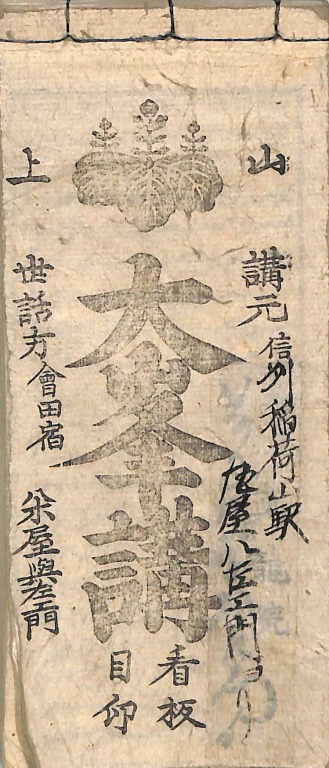 山
上
講元 信州 稲荷山駅
屋八左エ門
大峯講
看板
目印
世話方 會田宿
屋與左エ門